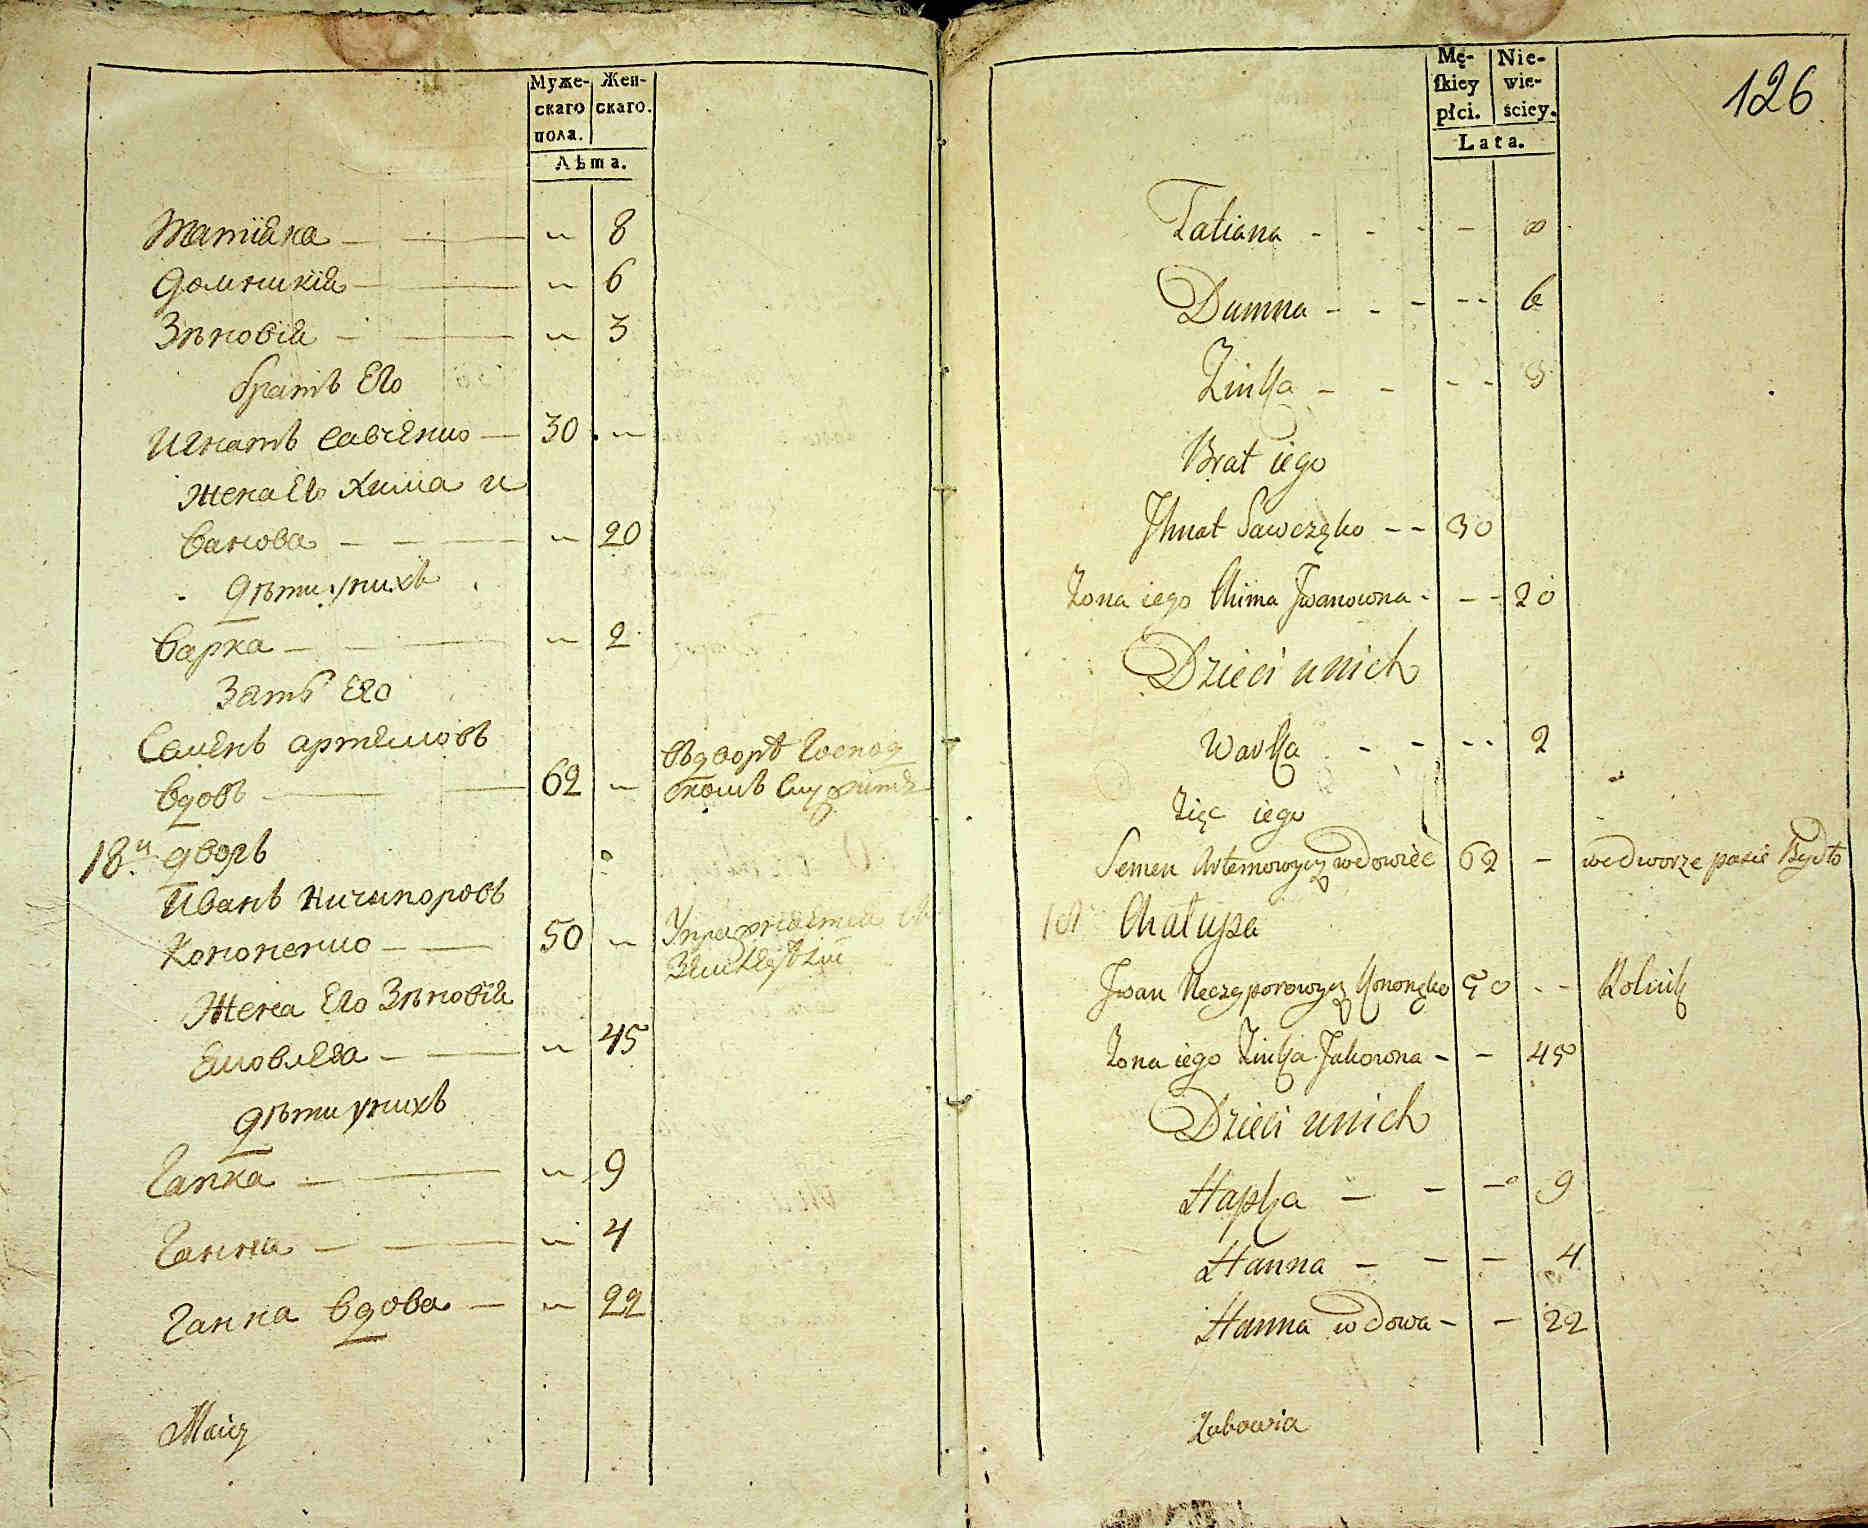 Муже-
скаго
пола.
Жен-
скаго.
Лѣта.
Татіяна — — — " 8
Домникія — — " 6
Зѣновія — — " 3
братъ Его
Игнатъ Савченко — 30 "
Жена Его Хима И
ванова — — — " 20
дѣти унихъ
Варка — — — " 2
Зять Его
Семенъ артемовъ
вдовъ — — 62 "
вдворѣ Господ
скомъ Служитъ
18й дворъ
Иванъ Ничипоровъ
Кононенко — — 50 "
Упражняется въ
Земледѣліи
Жена Его Зѣновія
Яковлева — — " 45
дѣти унихъ
Гапка — — " 9
Ганна — — " 4
Ганна вдова — " 22
Mę-
ſkiey
płci.
Nie-
wie-
ściey.
Lata.
126
Tatiana - - - - 8
Dumna - - - - - 6
Zinka - - - - 3
Brat iego
Ihnat Sawczęko - - 30
Zona iego Chima Iwanowna - - - 20
Dzieci unich
Warka - - - - 2
Zięc iego
Semen Artemowycz wdowiec 62 - wedworze pasie Bydło
18 Chałupa
Iwan Neczyporowycz Kononęko 50 - - Rolnik
Zona iego Zinka Jakowna - - 45
Dzieci unich
Hapka - - - 9
Hanna - - - 4
Hanna wdowa - - 22
Zubowia